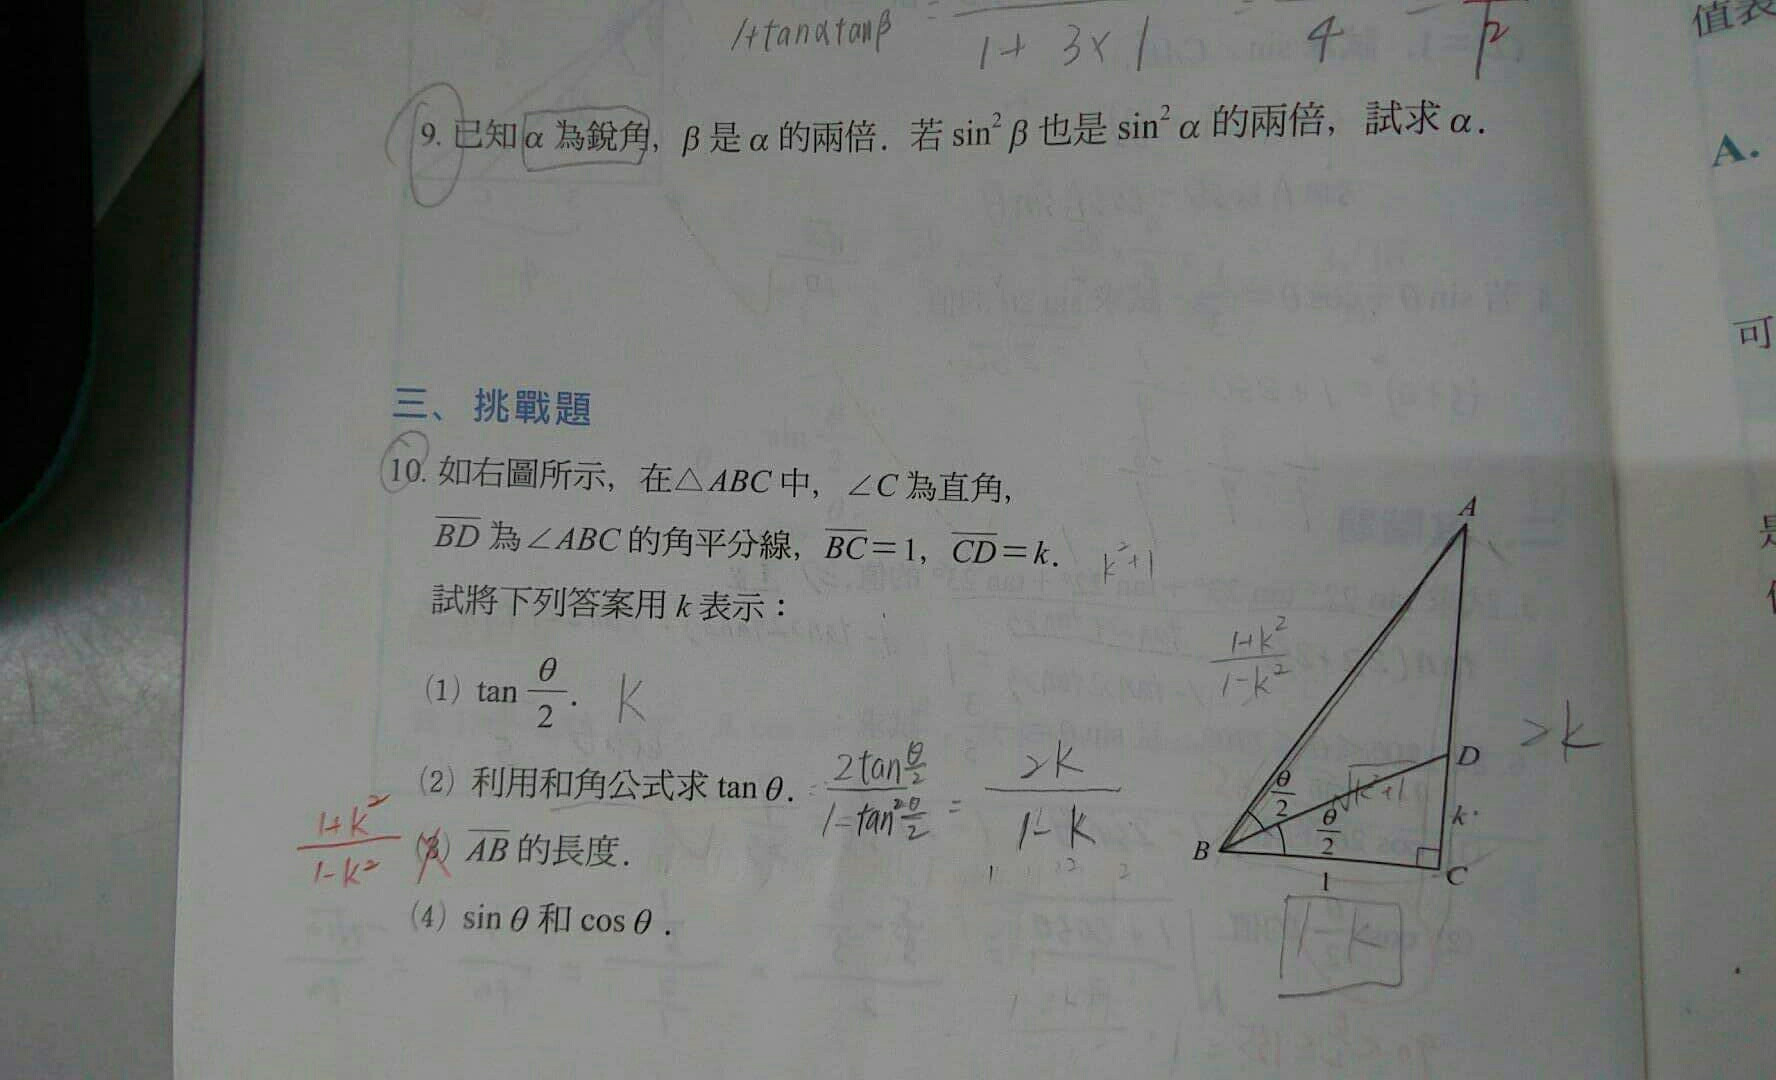 1+tanαtanβ
1+ 3×1
4
2
值表
9. 已知 α 為銳角, β 是 α 的兩倍. 若 sin² β 也是 sin² α 的兩倍, 試求 α.
A.
可
三、挑戰題
10. 如右圖所示, 在△ABC 中, ∠C 為直角,
BD 為∠ABC 的角平分線, BC=1, CD=k.
k²+1
試將下列答案用 k 表示:
(1) tan θ/2 . K
(2) 利用和角公式求 tan θ. = 2tan θ/2 / 1-tan² θ/2 = 2K / 1-K
1+k² / 1-k²
(3) AB 的長度.
(4) sin θ 和 cos θ.
A
1+k² / 1-k²
2k
D
θ/2
√k²+1
θ/2
k
B
C
1
1-k